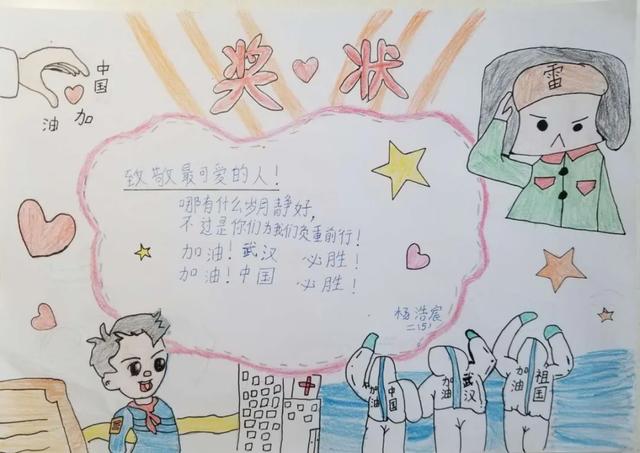 奖状
中国
加油
雷
致敬最可爱的人！
哪有什么岁月静好，
不过是你们为我们负重前行！
加油！武汉 必胜！
加油！中国 必胜！
杨浩宸
二（5）
加油 中国
加油 武汉
加油 祖国